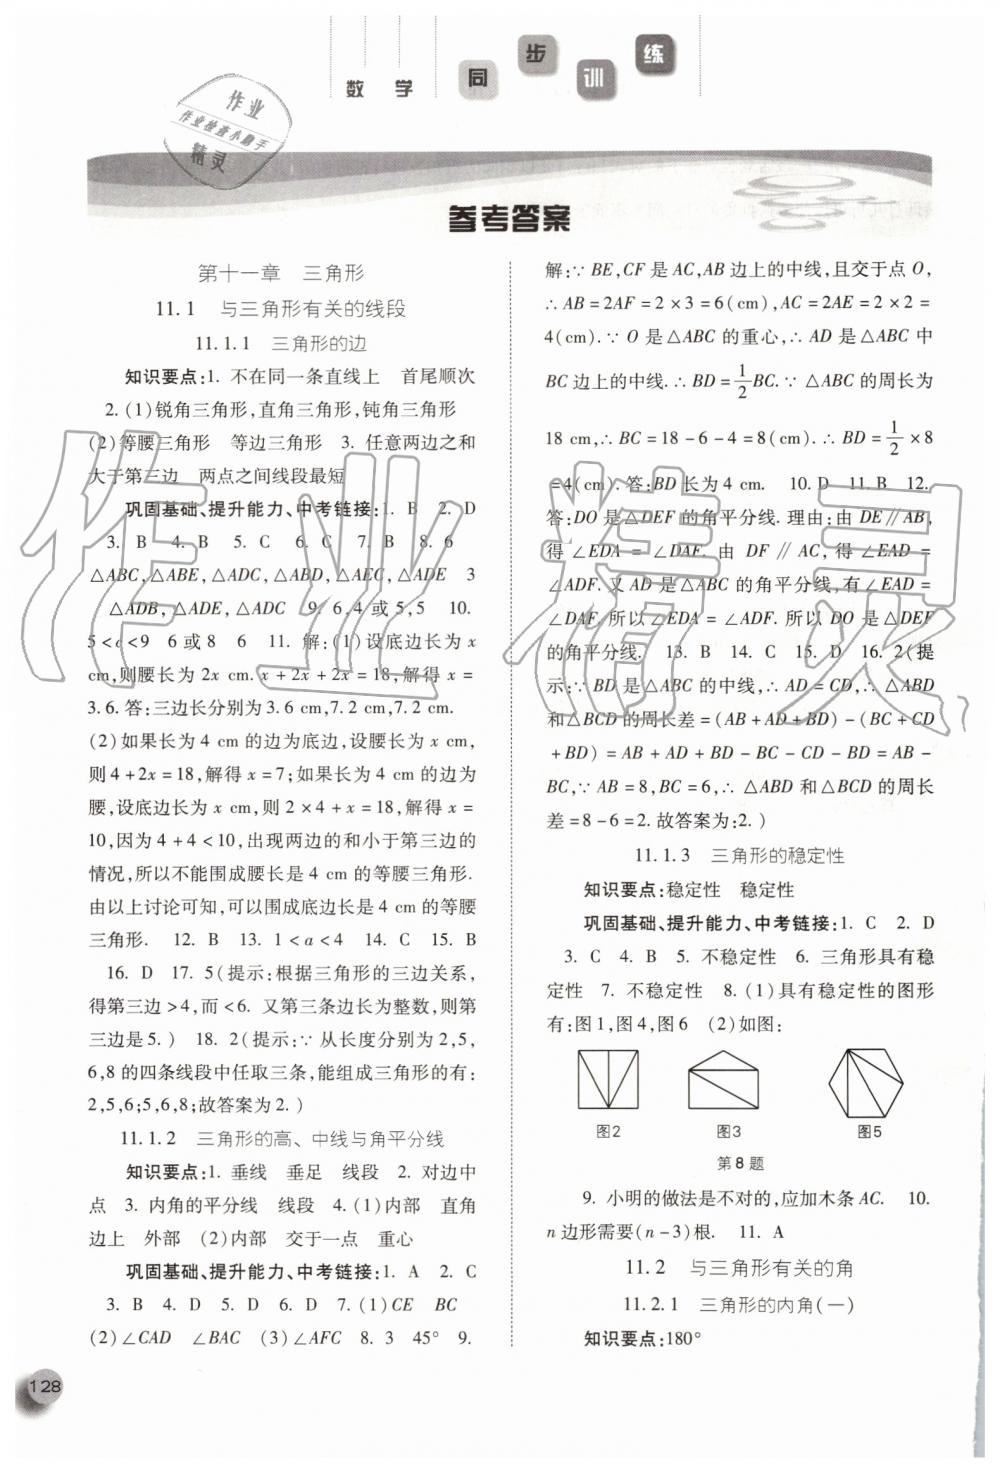 数学 同步训练
作业
作业检查小助手
精灵
参考答案
第十一章　三角形
11.1　与三角形有关的线段
11.1.1　三角形的边
知识要点:1. 不在同一条直线上　首尾顺次
2. (1)锐角三角形,直角三角形,钝角三角形
(2)等腰三角形　等边三角形　3. 任意两边之和
大于第三边　两点之间线段最短
巩固基础、提升能力、中考链接:1. B　2. D
3. B　4. B　5. C　6. C　7. B　8. 6
△ABC,△ABE,△ADC,△ABD,△AEC,△ADE　3
△ADB,△ADE,△ADC　9. 6,4或5,5　10.
5<c<9　6或8　6　11. 解:(1)设底边长为 x
cm,则腰长为2x cm. x+2x+2x=18,解得 x=
3.6. 答:三边长分别为3.6 cm,7.2 cm,7.2 cm.
(2)如果长为4 cm的边为底边,设腰长为 x cm,
则4+2x=18,解得 x=7;如果长为4 cm的边为
腰,设底边长为 x cm,则2×4+x=18,解得 x=
10,因为4+4<10,出现两边的和小于第三边的
情况,所以不能围成腰长是4 cm的等腰三角形.
由以上讨论可知,可以围成底边长是4 cm的等腰
三角形.　12. B　13. 1<a<4　14. C　15. B
16. D　17. 5(提示:根据三角形的三边关系,
得第三边>4,而<6. 又第三条边长为整数,则第
三边是5. )　18. 2(提示:∵从长度分别为2,5,
6,8的四条线段中任取三条,能组成三角形的有:
2,5,6;5,6,8;故答案为2. )
11.1.2　三角形的高、中线与角平分线
知识要点:1. 垂线　垂足　线段　2. 对边中
点　3. 内角的平分线　线段　4. (1)内部　直角
边上　外部　(2)内部　交于一点　重心
巩固基础、提升能力、中考链接:1. A　2. C
3. B　4. D　5. D　6. D　7. (1)CE　BC
(2)∠CAD　∠BAC　(3)∠AFC　8. 3　45°　9.
解:∵BE,CF是AC,AB边上的中线,且交于点O,
∴AB=2AF=2×3=6(cm),AC=2AE=2×2=
4(cm). ∵O是△ABC的重心,∴AD是△ABC中
BC边上的中线. ∴BD=1/2BC. ∵△ABC的周长为
18 cm,∴BC=18-6-4=8(cm). ∴BD=1/2×8
=4(cm). 答:BD长为4 cm.　10. D　11. B　12.
答:DO是△DEF的角平分线. 理由:由DE∥AB,
得∠EDA=∠DAF. 由DF∥AC,得∠EAD=
∠ADF. 又AD是△ABC的角平分线,有∠EAD=
∠DAF. 所以∠EDA=∠ADF. 所以DO是△DEF
的角平分线.　13. B　14. C　15. D　16. 2(提
示:∵BD是△ABC的中线,∴AD=CD,∴△ABD
和△BCD的周长差=(AB+AD+BD)-(BC+CD
+BD)=AB+AD+BD-BC-CD-BD=AB-
BC,∵AB=8,BC=6,∴△ABD和△BCD的周长
差=8-6=2. 故答案为:2. )
11.1.3　三角形的稳定性
知识要点:稳定性　稳定性
巩固基础、提升能力、中考链接:1. C　2. D
3. C　4. B　5. 不稳定性　6. 三角形具有稳
定性　7. 不稳定性　8. (1)具有稳定性的图形
有:图1,图4,图6　(2)如图:
图2　图3　图5
第8题
9. 小明的做法是不对的,应加木条AC.　10.
n边形需要(n-3)根.　11. A
11.2　与三角形有关的角
11.2.1　三角形的内角(一)
知识要点:180°
128
作业精灵